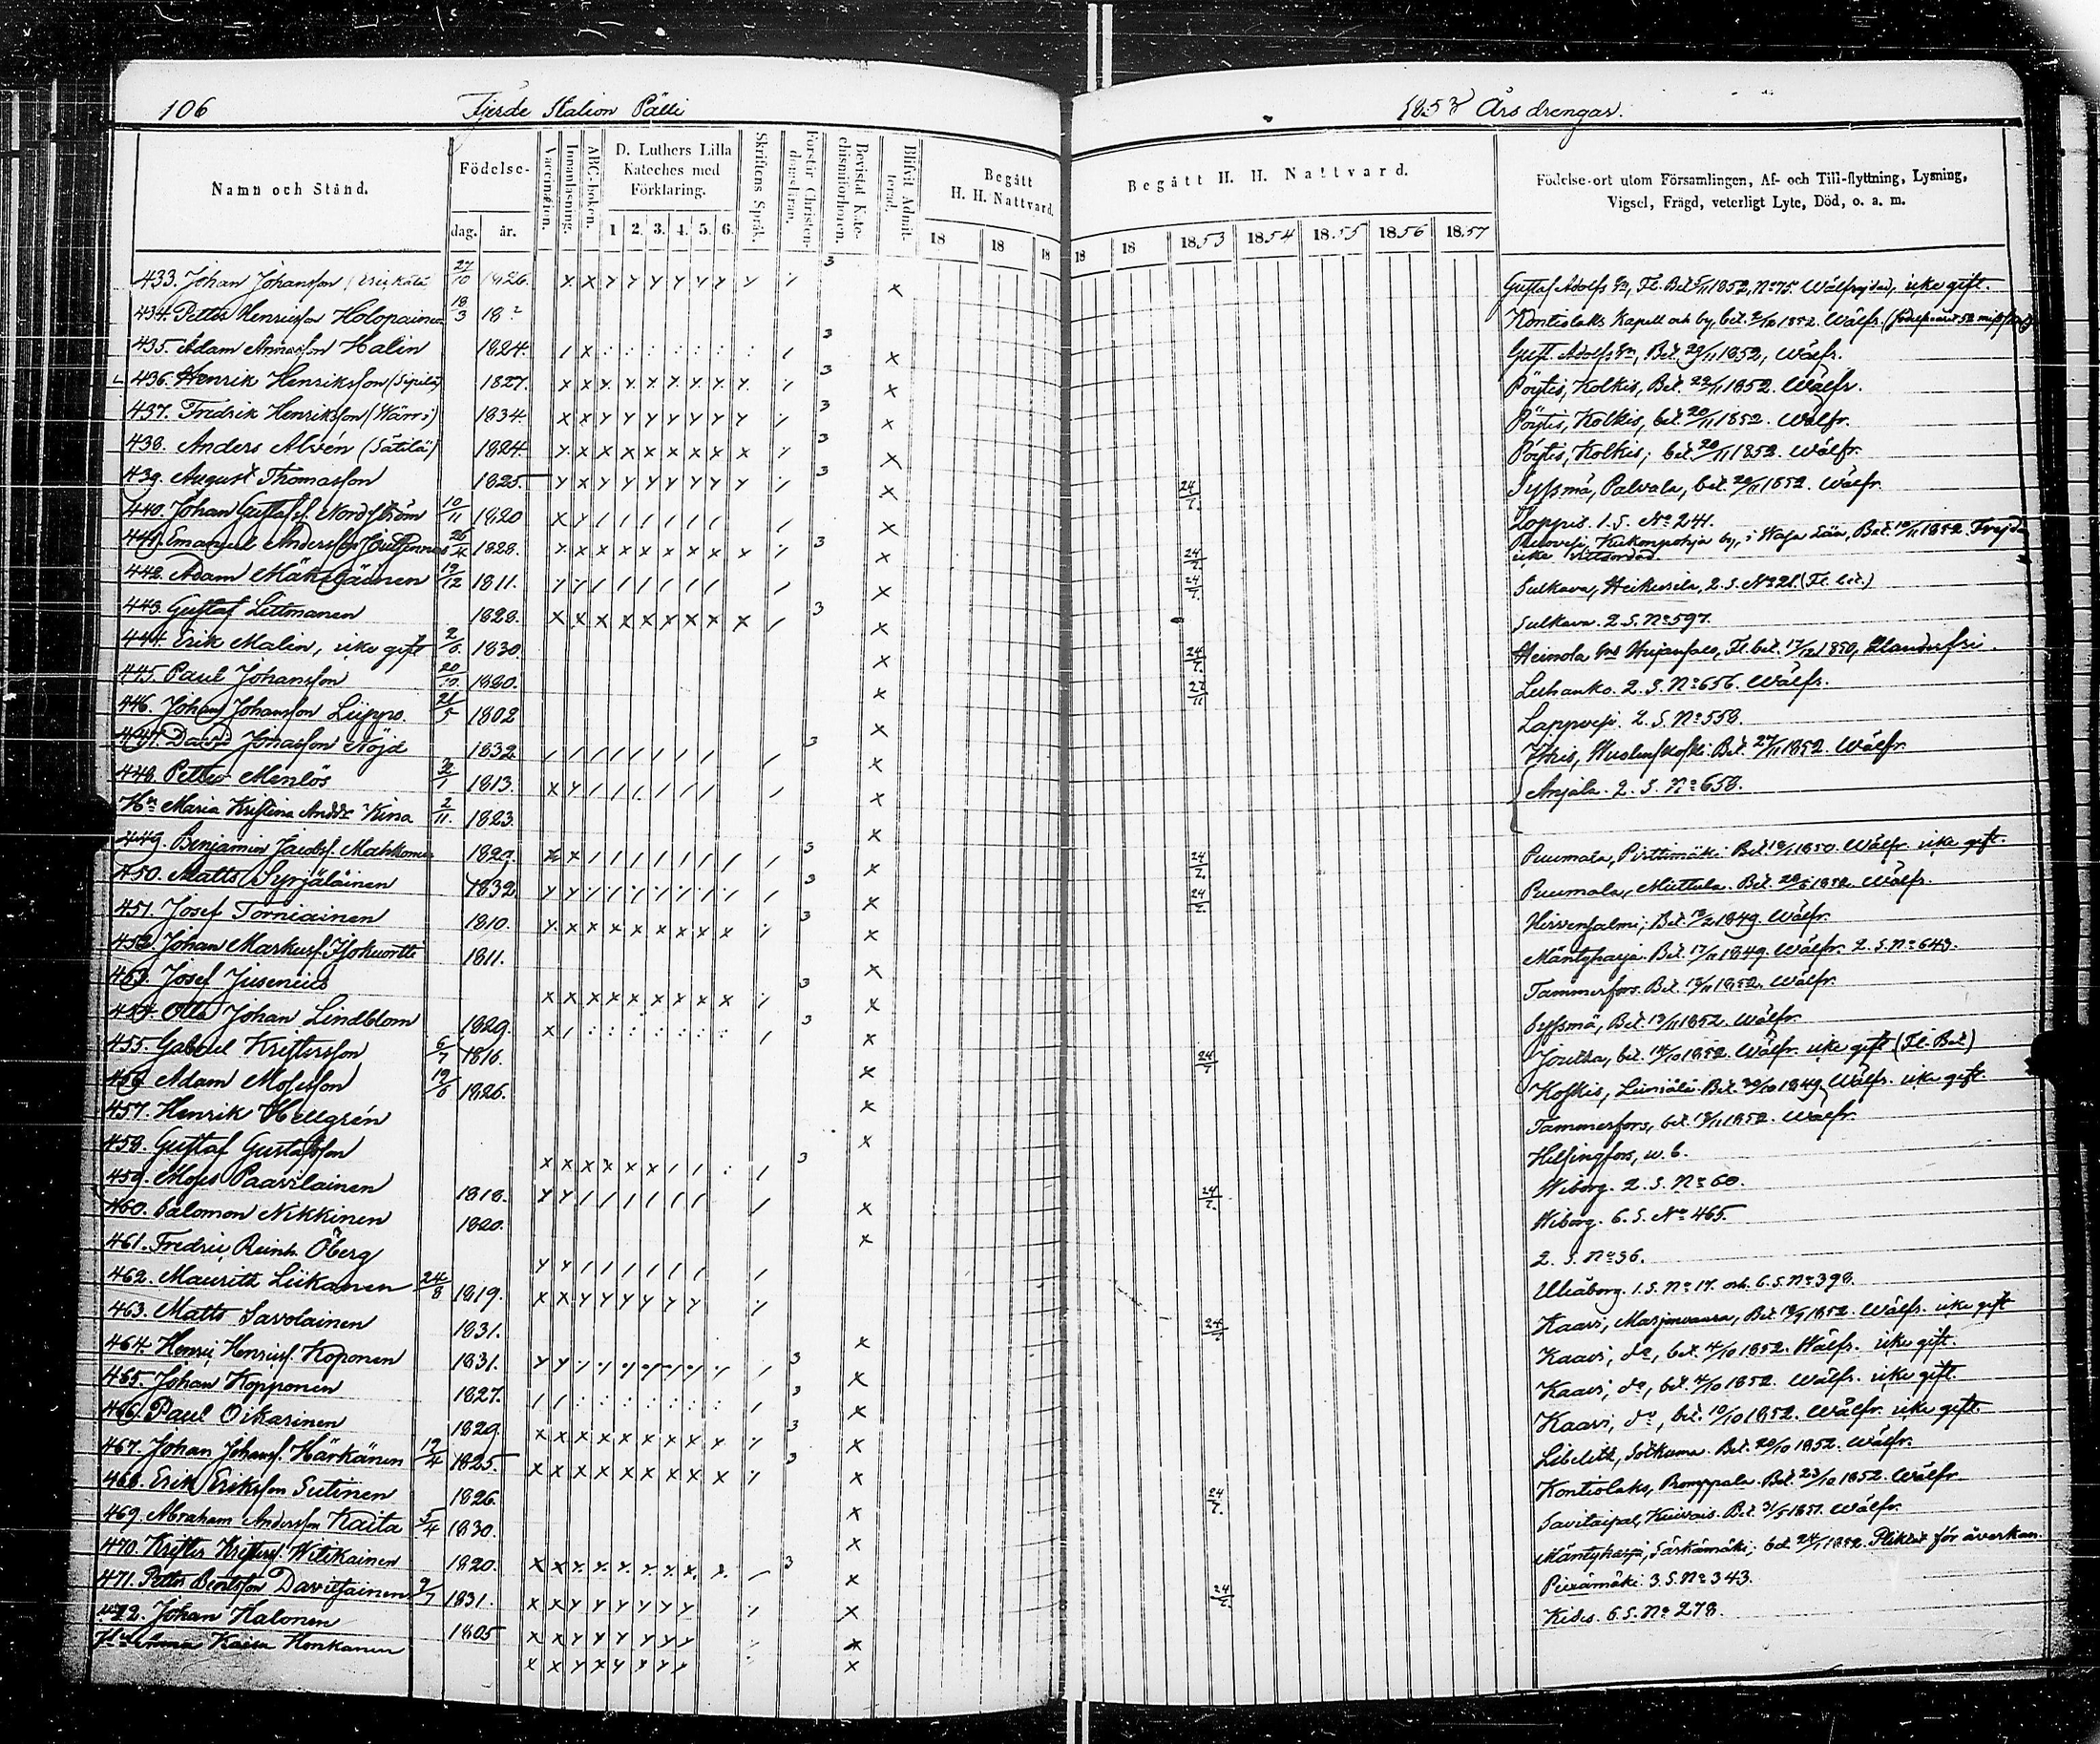 106 Fjerde Station Pälli
1853 Års drengar.
Namn och Stånd.
Födelse-
dag. år.
Vaccination.
Innanläsning.
ABC-boken.
D. Luthers Lilla Kateches med Förklaring.
1 2. 3. 4. 5. 6.
Skriftens Språk.
Förstår Christendomsläran.
Bevistat Katechismiförhören.
Blifvit Admitterad.
Begått H. H. Nattvard.
18 18 18
Begått H. H. Nattvard.
18 18 1853 1854 1855 1856 1857
Födelse-ort utom Församlingen, Af- och Till-flyttning, Lysning,
Vigsel, Frägd, veterligt Lyte, Död, o. a. m.
433. Johan Johansson 27/10 1826. Gustaf Adolfs 1852, No 75. Wälfrejdad, icke gift.
434. Petter Henricsson Holopainen 18/3 18? Kontiolaks Kapell och by, bet. 1852. Wälfr.
435. Adam Halin 1824. Gust. Adolfs, Bet. 29/11 1852, Wälfr.
436. Henrik Henriksson 1827. Pöytis, Kolkis, Bet. 1852. Wälfr.
437. Fredrik Henriksson 1834. Pöytis, Kolkis, bet. 20/11 1852. Wälfr.
438. Anders Alvén (Sätilä) 1824. Pöytis, Kolkis, bet. 20/11 1852. Wälfr.
439. August Thomasson 1825. 24/7. Syssmä, Palvala, bet. 1852. Wälfr.
440. Johan Gustafss. Nordström 10/11 1820 Loppis. 1. S. No 241.
441. Emanuel Andersson 26/4 1828. 24/7. by, i Wasa Län, Bet. 1852. Frejd
icke vitsordad.
442. Adam 19/12 1811. 24/7. Sulkava, 2. S. No 21. (Fl. bet.)
443. Gustaf Littmanen 1828. Sulkava. 2. S. No 597.
444. Erik Malin, icke gift 2/6 1830. 24/7. Heinola 1850,
445. Paul Johansson 20/10 1820. 27/11 Luhanko. 2. S. No 656. Wälfr.
446. Johan Johansson Leppo. 21/5 1802 Lappvesi. 2. S. No 558.
447. David Jonasson Nöjd 1832 Bet. 27/11 1852. Wälfr.
448. Petter Menlös 1813. Anjala. 2. S. No 658.
Hu Maria Kristina 2/11. 1823.
449. Benjamin Jacobss. 1829. 24/7. Puumala, Pirttimäki. Bet. 1850. Wälfr. icke gift.
450. Matts Syrjäläinen 1832 24/7. Puumala, Miettula. Bet. 1852. Wälfr.
451. Josef Torniainen 1810. Hirvensalmi, Bet. 1849. Wälfr.
452. Johan Markuss. 1811. Mäntyharju. Bet. 1849. Wälfr. 2. S. No 643.
453. Josef Jusenius Tammerfors. Bet. 1852. Wälfr.
454. Otto Johan Lindblom 1829. Syssmä, Bet. 1852. Wälfr.
455. Gabriel Kristersson 6/7 1816. 24/7 Joutsa, bet. 14/10 1852. Wälfr. icke gift (Fl. Bet.)
456. Adam Mosesson 19/6 1826. Koskis, Bet. 30/10 1849. Wälfr. icke gift.
457. Henrik Hellgrén Tammerfors, bet. 1852. Wälfr.
458. Gustaf Gustafsson Helsingfors, u. b.
459. Moses Paavilainen 1818. 24/7. Wiborg. 2. S. No 60.
460. Salomon Nikkinen 1820. Wiborg. 6. S. No 465.
461. Fredric Reinh. Öberg 2. S. No 36.
462. Mauritz Liikanen 24/8 1819. Uleåborg. 1. S. No 17. och 6. S. No 398.
463. Matts Savolainen 1831. 24/7 Kaavi, Bet. 1852. Wälfr. icke gift
464. Henric Henricss. Koponen 1831. Kaavi, do, bet. 4/10 1852. Wälfr. icke gift.
465. Johan Kopponen 1827. Kaavi, do, bet. 4/10 1852. Wälfr. icke gift.
466. Paul Oikarinen 1829. Kaavi, do, bet. 10/10 1852. Wälfr. icke gift.
467. Johan Johanss. Härkänen 12/4 1825. Libelitz, Sotkuma. Bet. 20/10 1852. Wälfr.
468. Erik Eriksson Sutinen 1826. 24/7. Kontiolaks, Romppala. Bet. 23/10 1852. Wälfr.
469. Abraham Andersson Kaita 5/4 1830. Savitaipal, Bet. Wälfr.
470. Krister Witikainen 1820. Mäntyharju, Särkämäki, bet. 1852. Pliktat för åverkan.
471. Petter Davitsainen 9/7 1831. 24/7. Piexämäki. 3. S. No 343.
472. Johan Halonen 1805 Kides. 6. S. No 278.
Hu Anna Kaisa Honkanen